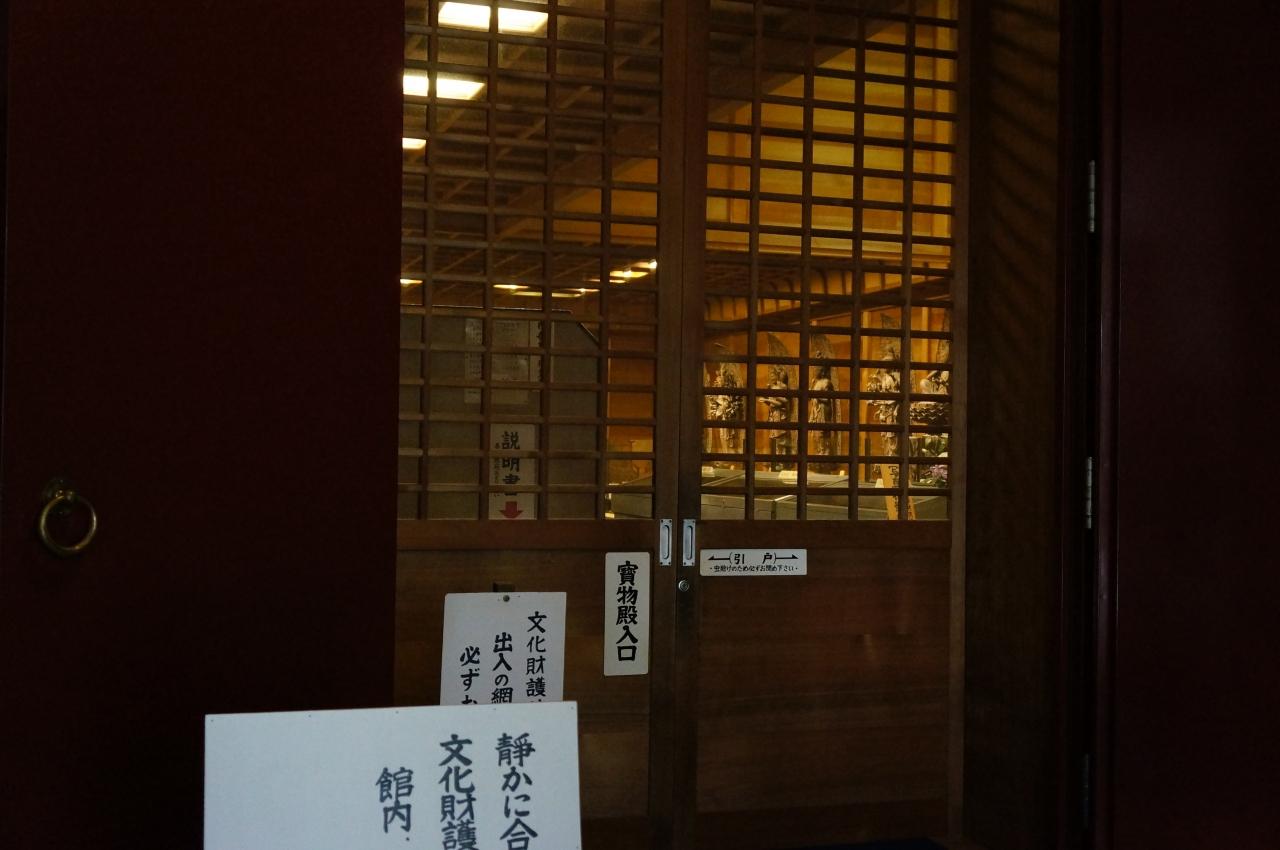 説明書
寳物殿入口
引 戸
・虫除けのため必ずお閉め下さい・
文化財護
出入の網
必ずお
靜かに合
文化財護
館内